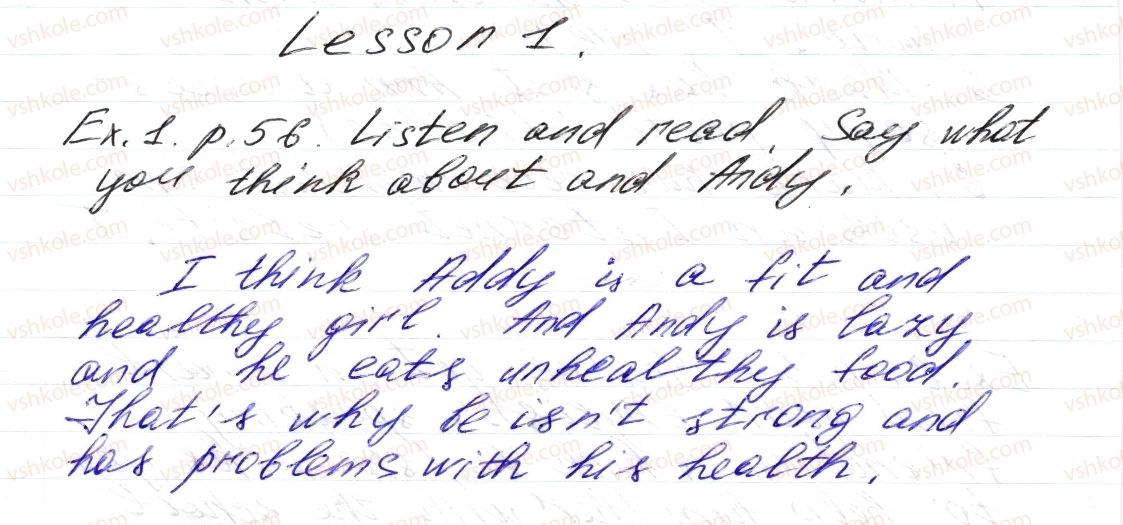 Lesson 1.
Ex. 1. p. 56. Listen and read. Say what
you think about and Andy.
I think Addy is a fit and
healthy girl. And Andy is lazy
and he eats unhealthy food.
That's why he isn't strong and
has problems with his health.
vshkole.com